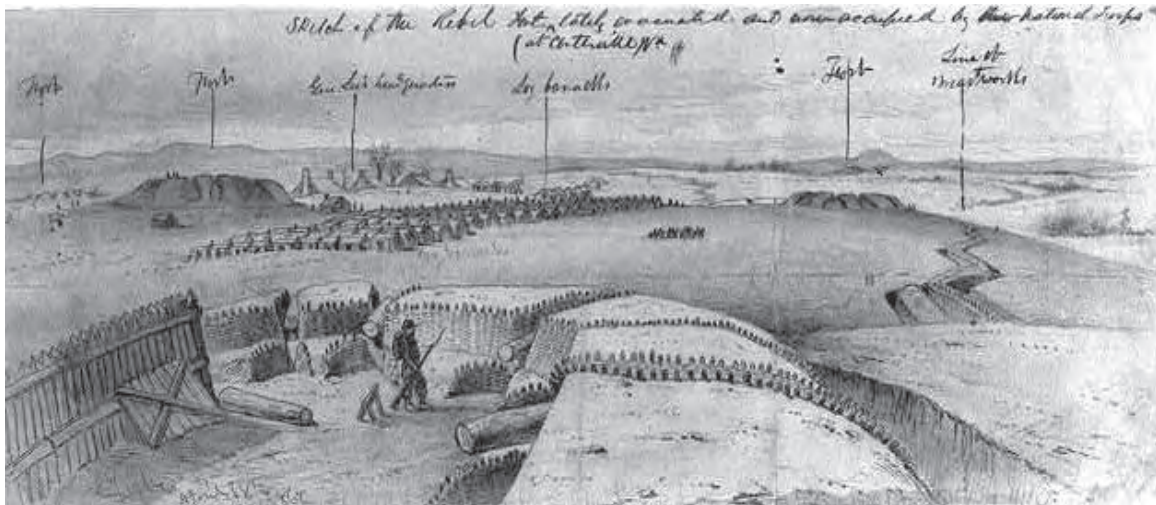 Sketch of the Rebel Fort, lately evacuated and now occupied by the national Troops
(at Centerville Va
Fort
Fort
Gen Lee's head quarters
Log barracks
Fort
Line of
breastworks